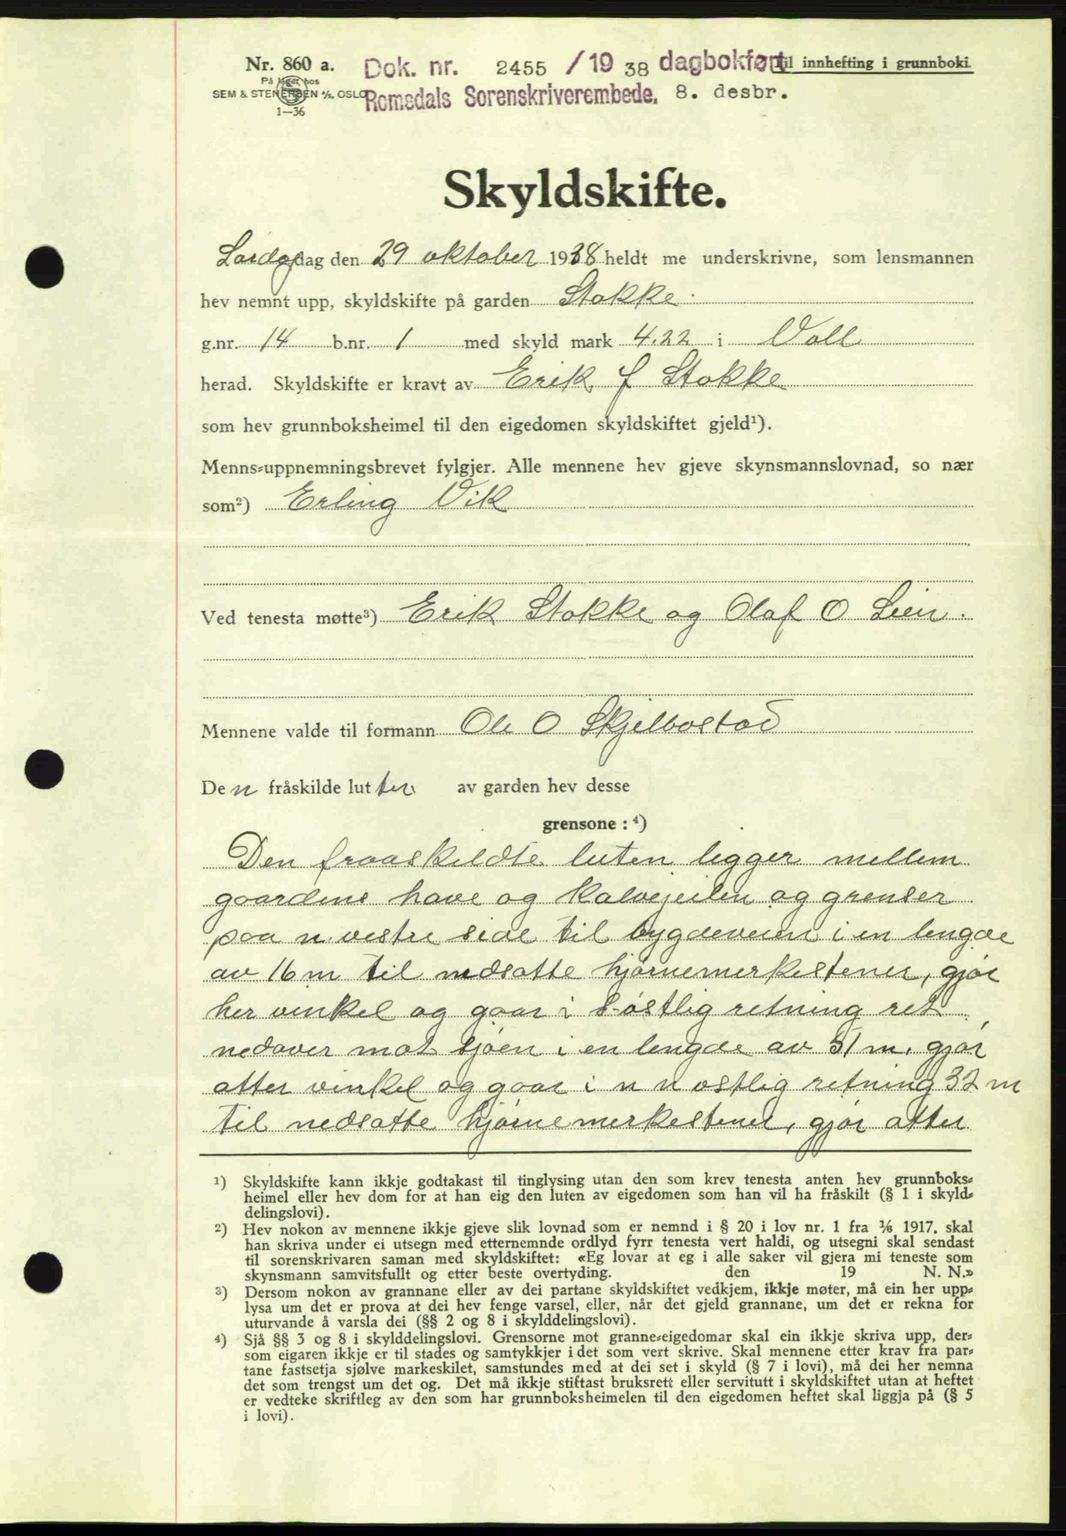 Nr. 860 a.
På lager hos
SEM & STENERSEN A/S, OSLO
1—36
Dok. nr. 2455 / 19 38 dagbokført
Romsdals Sorenskriverembede. 8. desbr.
til innhefting i grunnboki.
Skyldskifte.
Lördag dag den 29 oktober 1938 heldt me underskrivne, som lensmannen
hev nemnt upp, skyldskifte på garden Stokke.
g.nr. 14 b.nr. 1 med skyld mark 4.22 i Voll
herad. Skyldskifte er kravt av Erik J Stokke
som hev grunnboksheimel til den eigedomen skyldskiftet gjeld¹).
Menns-uppnemningsbrevet fylgjer. Alle mennene hev gjeve skynsmannslovnad, so nær
som²) Erling Vik
Ved tenesta møtte³) Erik Stokke og Olaf O Leir.
Mennene valde til formann Ole O Skjelbostad
Den fråskilde luten av garden hev desse
grensone: ⁴)
Den fraaskildte luten ligger mellem
gaardens have og Kalvejeilen og grenser
paa n. vestre side til bygdeveien i en lengde
av 16 m til nedsatte hjørnemerkestener, gjør
her vinkel og gaar i s-østlig retning ret
nedover mot sjøen i en lengde av 51 m, gjør
atter vinkel og gaar i n n ostlig retning 32 m
til nedsatte hjørnemerkestener, gjør atter
¹) Skyldskifte kann ikkje godtakast til tinglysing utan den som krev tenesta anten hev grunnboks-
heimel eller hev dom for at han eig den luten av eigedomen som han vil ha fråskilt (§ 1 i skyld-
delingslovi).
²) Hev nokon av mennene ikkje gjeve slik lovnad som er nemnd i § 20 i lov nr. 1 fra ⅙ 1917, skal
han skriva under ei utsegn med etternemnde ordlyd fyrr tenesta vert haldi, og utsegni skal sendast
til sorenskrivaren saman med skyldskiftet: «Eg lovar at eg i alle saker vil gjera mi teneste som
skynsmann samvitsfullt og etter beste overtyding. den 19 N. N.»
³) Dersom nokon av grannane eller av dei partane skyldskiftet vedkjem, ikkje møter, må ein her upp-
lysa um det er prova at dei hev fenge varsel, eller, når det gjeld grannane, um det er rekna for
uturvande å varsla dei (§§ 2 og 8 i skylddelingslovi).
⁴) Sjå §§ 3 og 8 i skylddelingslovi. Grensorne mot granne-eigedomar skal ein ikkje skriva upp, der-
som eigaren ikkje er til stades og samtykkjer i det som vert skrive. Skal mennene etter krav fra par-
tane fastsetja sjølve markeskilet, samstundes med at dei set i skyld (§ 7 i lovi), må dei her nemna
det som trengst um det og. Det må ikkje stiftast bruksrett eller servitutt i skyldskiftet utan at heftet
er vedteke skriftleg av den som har grunnboksheimelen til den eigedomen heftet skal liggja på (§ 5
i lovi).